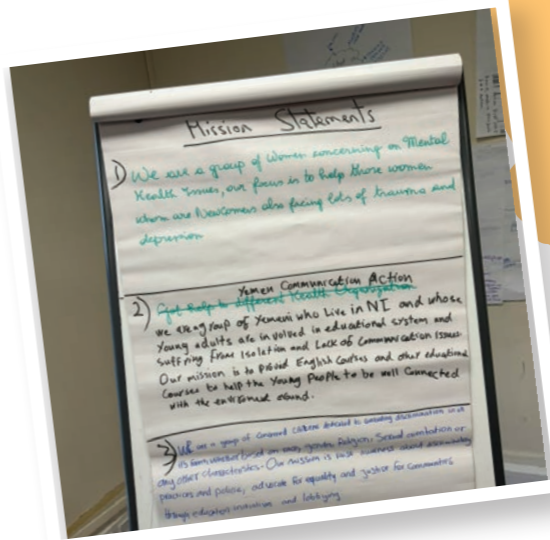 Mission Statements
1) We are a group of women concerning on Mental
Health Issues, our focus is to help those women
whom are NewComers also facing lots of trauma and
depression
Yemen Communication Action
2) Get help to different Health Organization
we are group of Yemeni who Live in NI and whose
Young adults are involved in educational system and
suffring from Isolation and Lack of Communication issues
Our mission is to Provid English Courses and other educational
Courses to help the Young People to be well Connected
with the around.
3) We are a group of citizens to discrimination in all
its form whether based on gender, Religion, Sexual orientation or
any other characteristics. Our mission is awareness about
practices and policies, advocate for equality and justice for
through education and lobbying